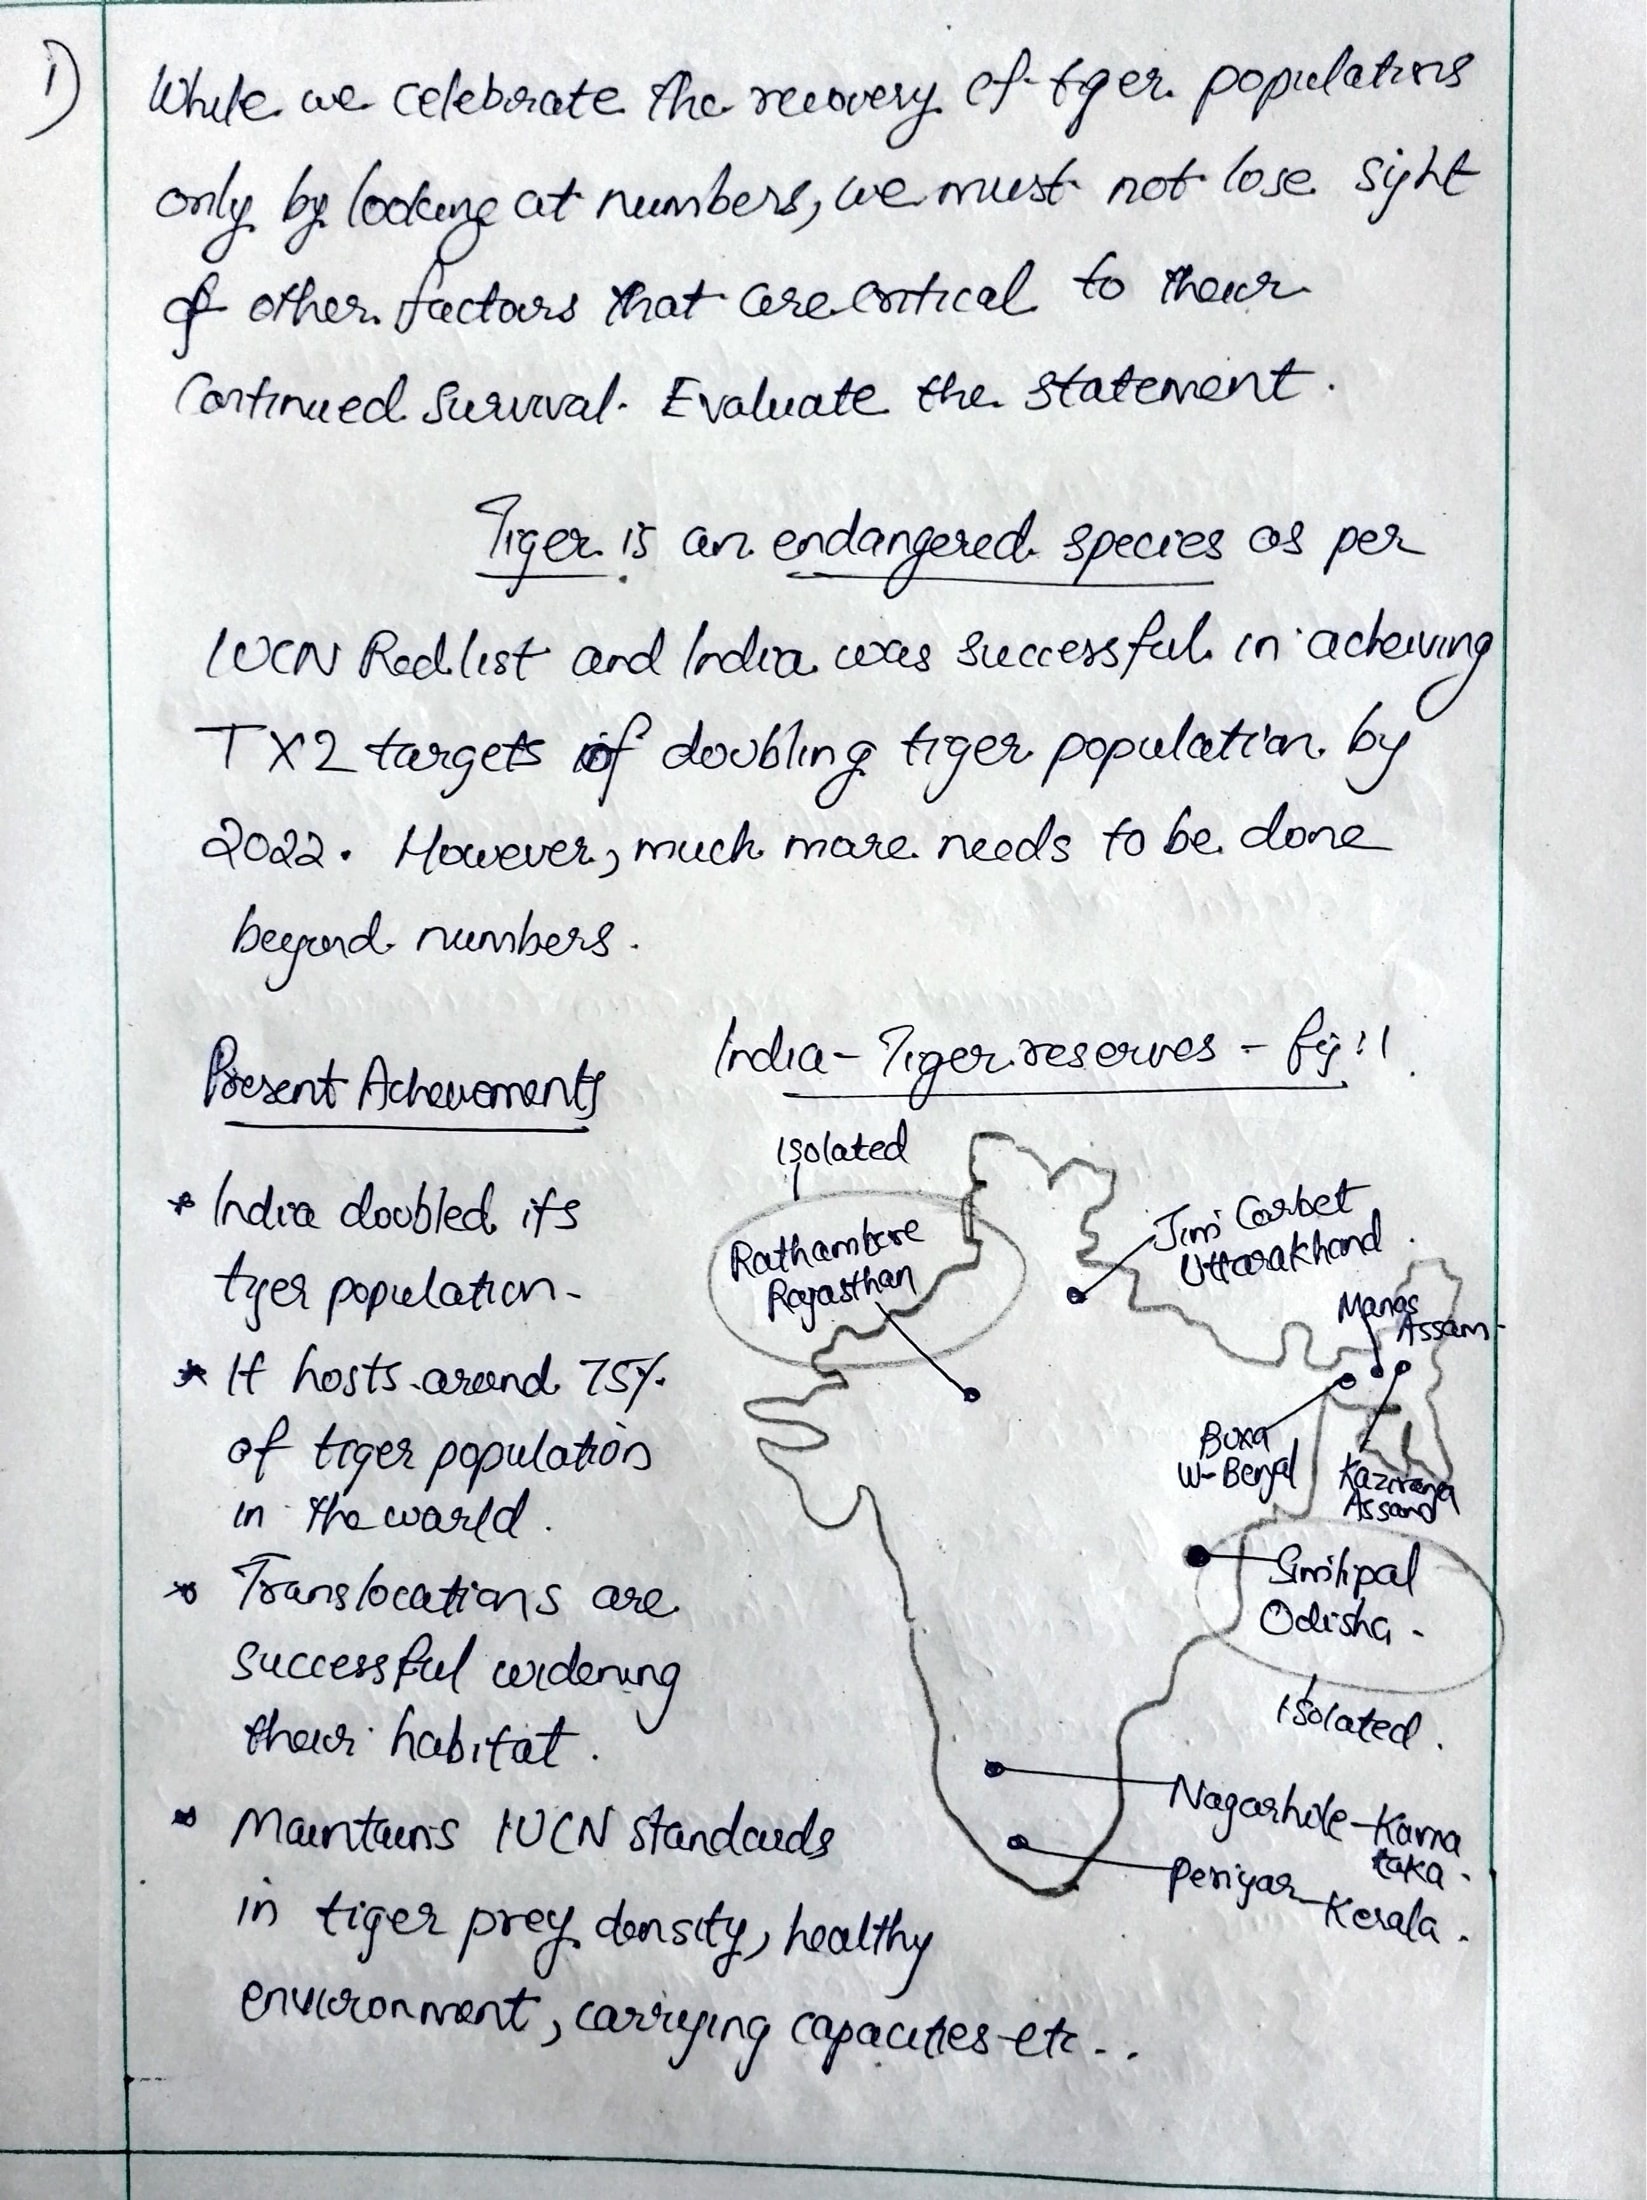 1)
While we celebrate the recovery of tiger populations
only by looking at numbers, we must not lose sight
of other factors that are critical to their
Continued survival. Evaluate the statement.
Tiger is an endangered species as per
IUCN Redlist and India was successful in acheiving
TX2 targets of doubling tiger population by
2022. However, much more needs to be done
beyond numbers.
Present Acheivements
* India doubled its
tiger population-
* It hosts around 75%
of tiger population
in the world.
* Translocations are
successful widening
their habitat.
* Maintains IUCN standards
in tiger prey density, healthy
environment, carrying capacities etc..
India - Tiger reserves - fig:1.
Isolated
Rathambore
Rajasthan
Jim Corbet
Uttarakhand.
Manas
Assam-
Buxa
W-Bengal
Kaziranga
Assam
Similipal
Odisha-
Isolated.
Nagarhole-Karna
taka-
Periyar-Kerala.